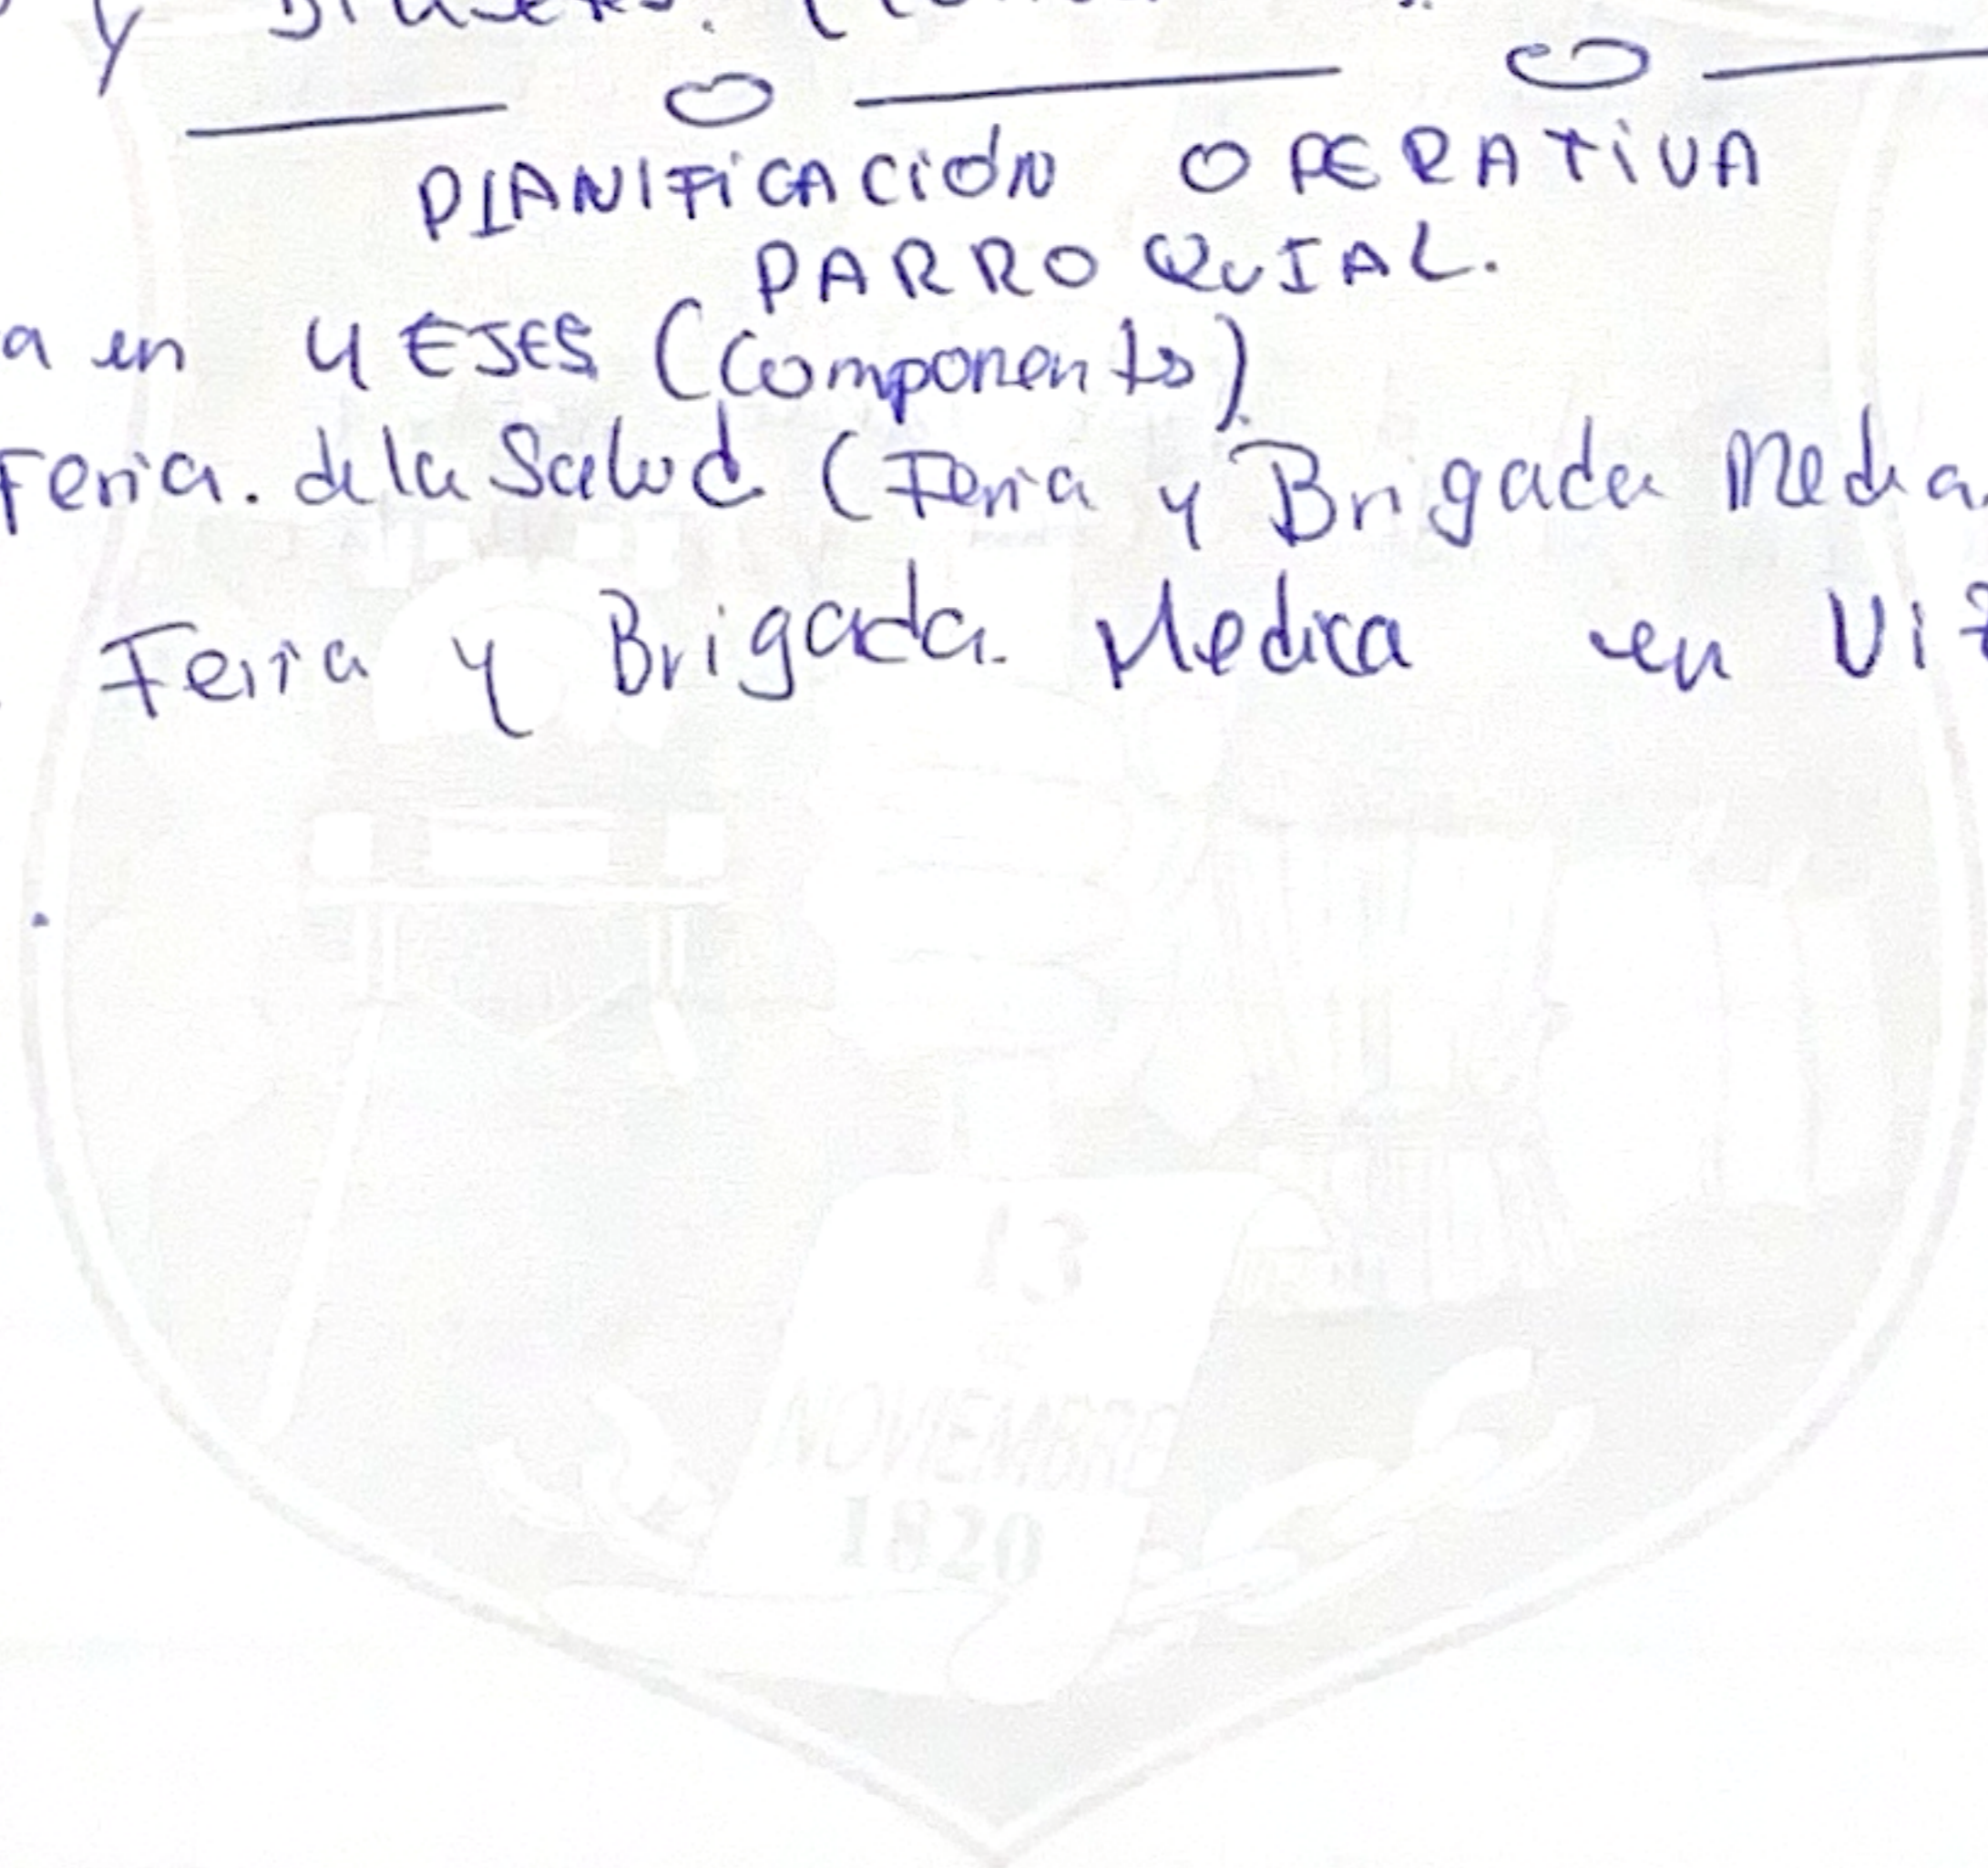 y
PLANIFICACIÓN OPERATIVA
PARROQUIAL.
a en 4 EJES (Componentes)
Feria. de la Salud (Feria y Brigada Medica
Feria y Brigada. Medica en
13
DE
NOVIEMBRE
1820